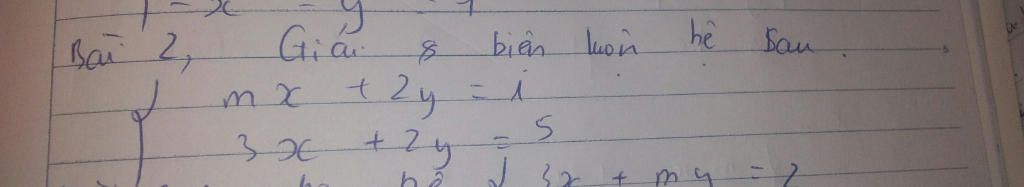 - x - y = 1
Bài 2, Giải & biện luận hệ sau.
mx + 2y = 1
3x + 2y = 5
hệ { 3x + my = 2